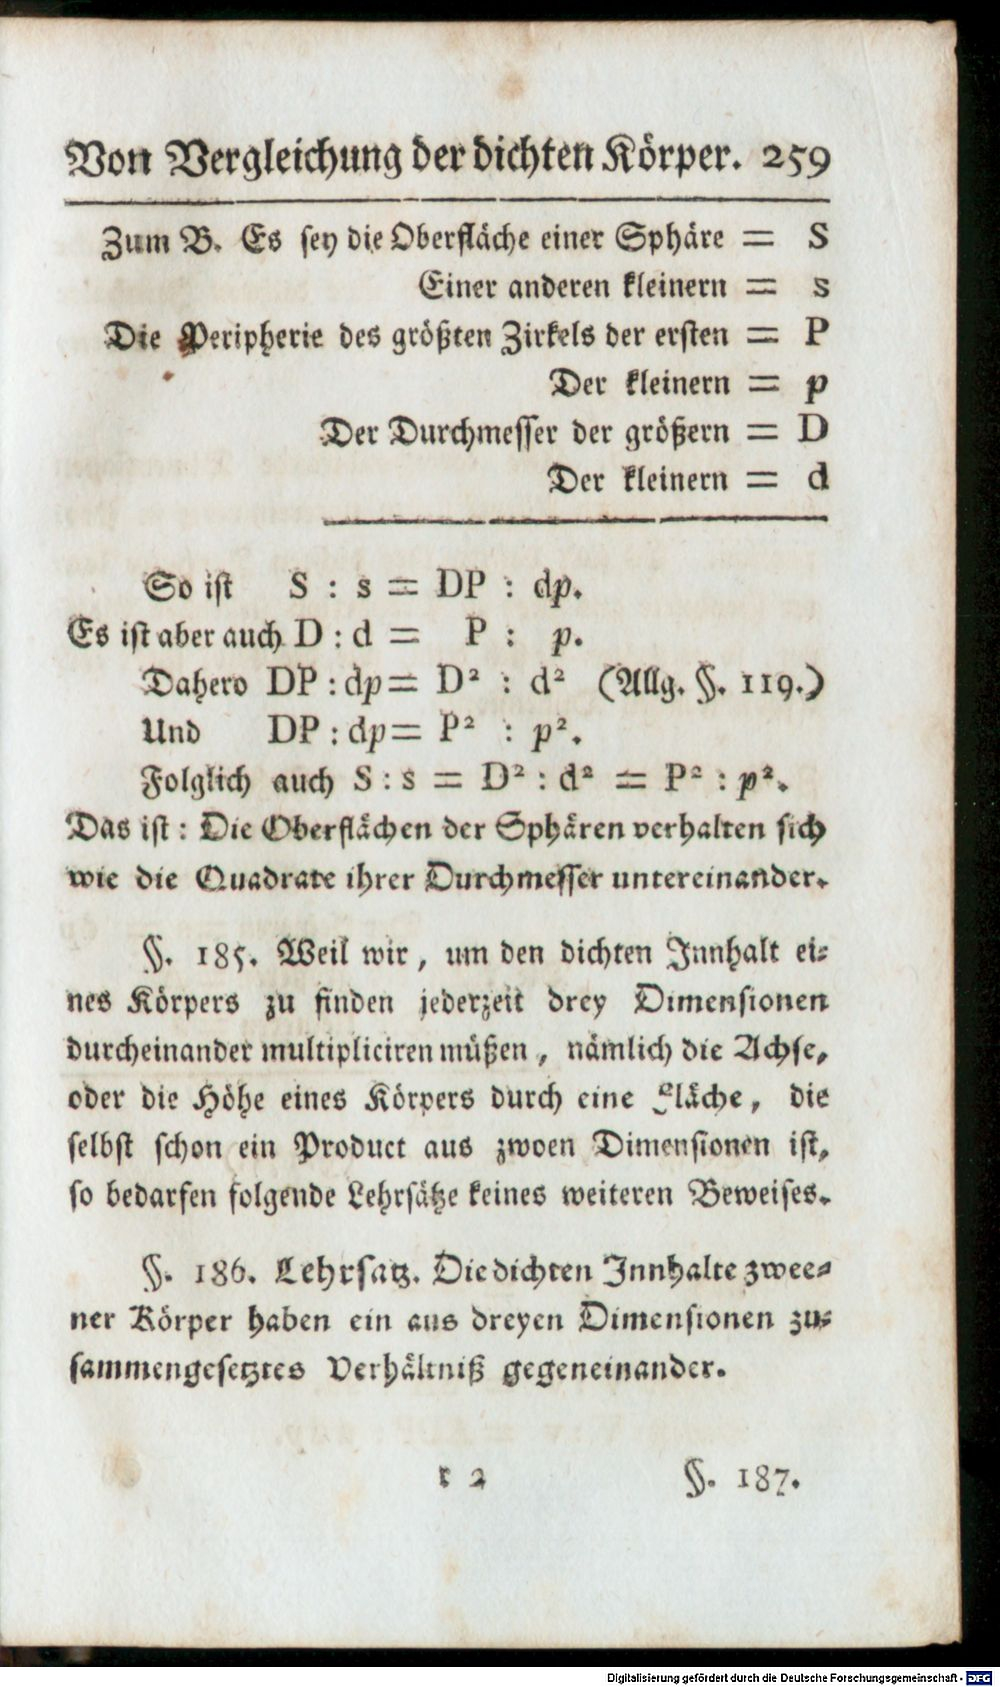 Von Vergleichung der dichten Körper. 259
Zum B. Es sey die Oberfläche einer Sphäre = S
Einer anderen kleinern = s
Die Peripherie des größten Zirkels der ersten = P
Der kleinern = p
Der Durchmesser der größern = D
Der kleinern = d
So ist S : s = DP : dp.
Es ist aber auch D : d = P : p.
Dahero DP : dp = D² : d² (Allg. §. 119.)
Und DP : dp = P² : p².
Folglich auch S : s = D² : d² = P² : p².
Das ist: Die Oberflächen der Sphären verhalten sich
wie die Quadrate ihrer Durchmesser untereinander.
§. 185. Weil wir, um den dichten Innhalt ei-
nes Körpers zu finden jederzeit drey Dimensionen
durcheinander multipliciren müßen, nämlich die Achse,
oder die Höhe eines Körpers durch eine Fläche, die
selbst schon ein Product aus zwoen Dimensionen ist,
so bedarfen folgende Lehrsätze keines weiteren Beweises.
§. 186. Lehrsatz. Die dichten Innhalte zwee-
ner Körper haben ein aus dreyen Dimensionen zu-
sammengesetztes Verhältniß gegeneinander.
r 2 §. 187.
Digitalisierung gefördert durch die Deutsche Forschungsgemeinschaft - DFG